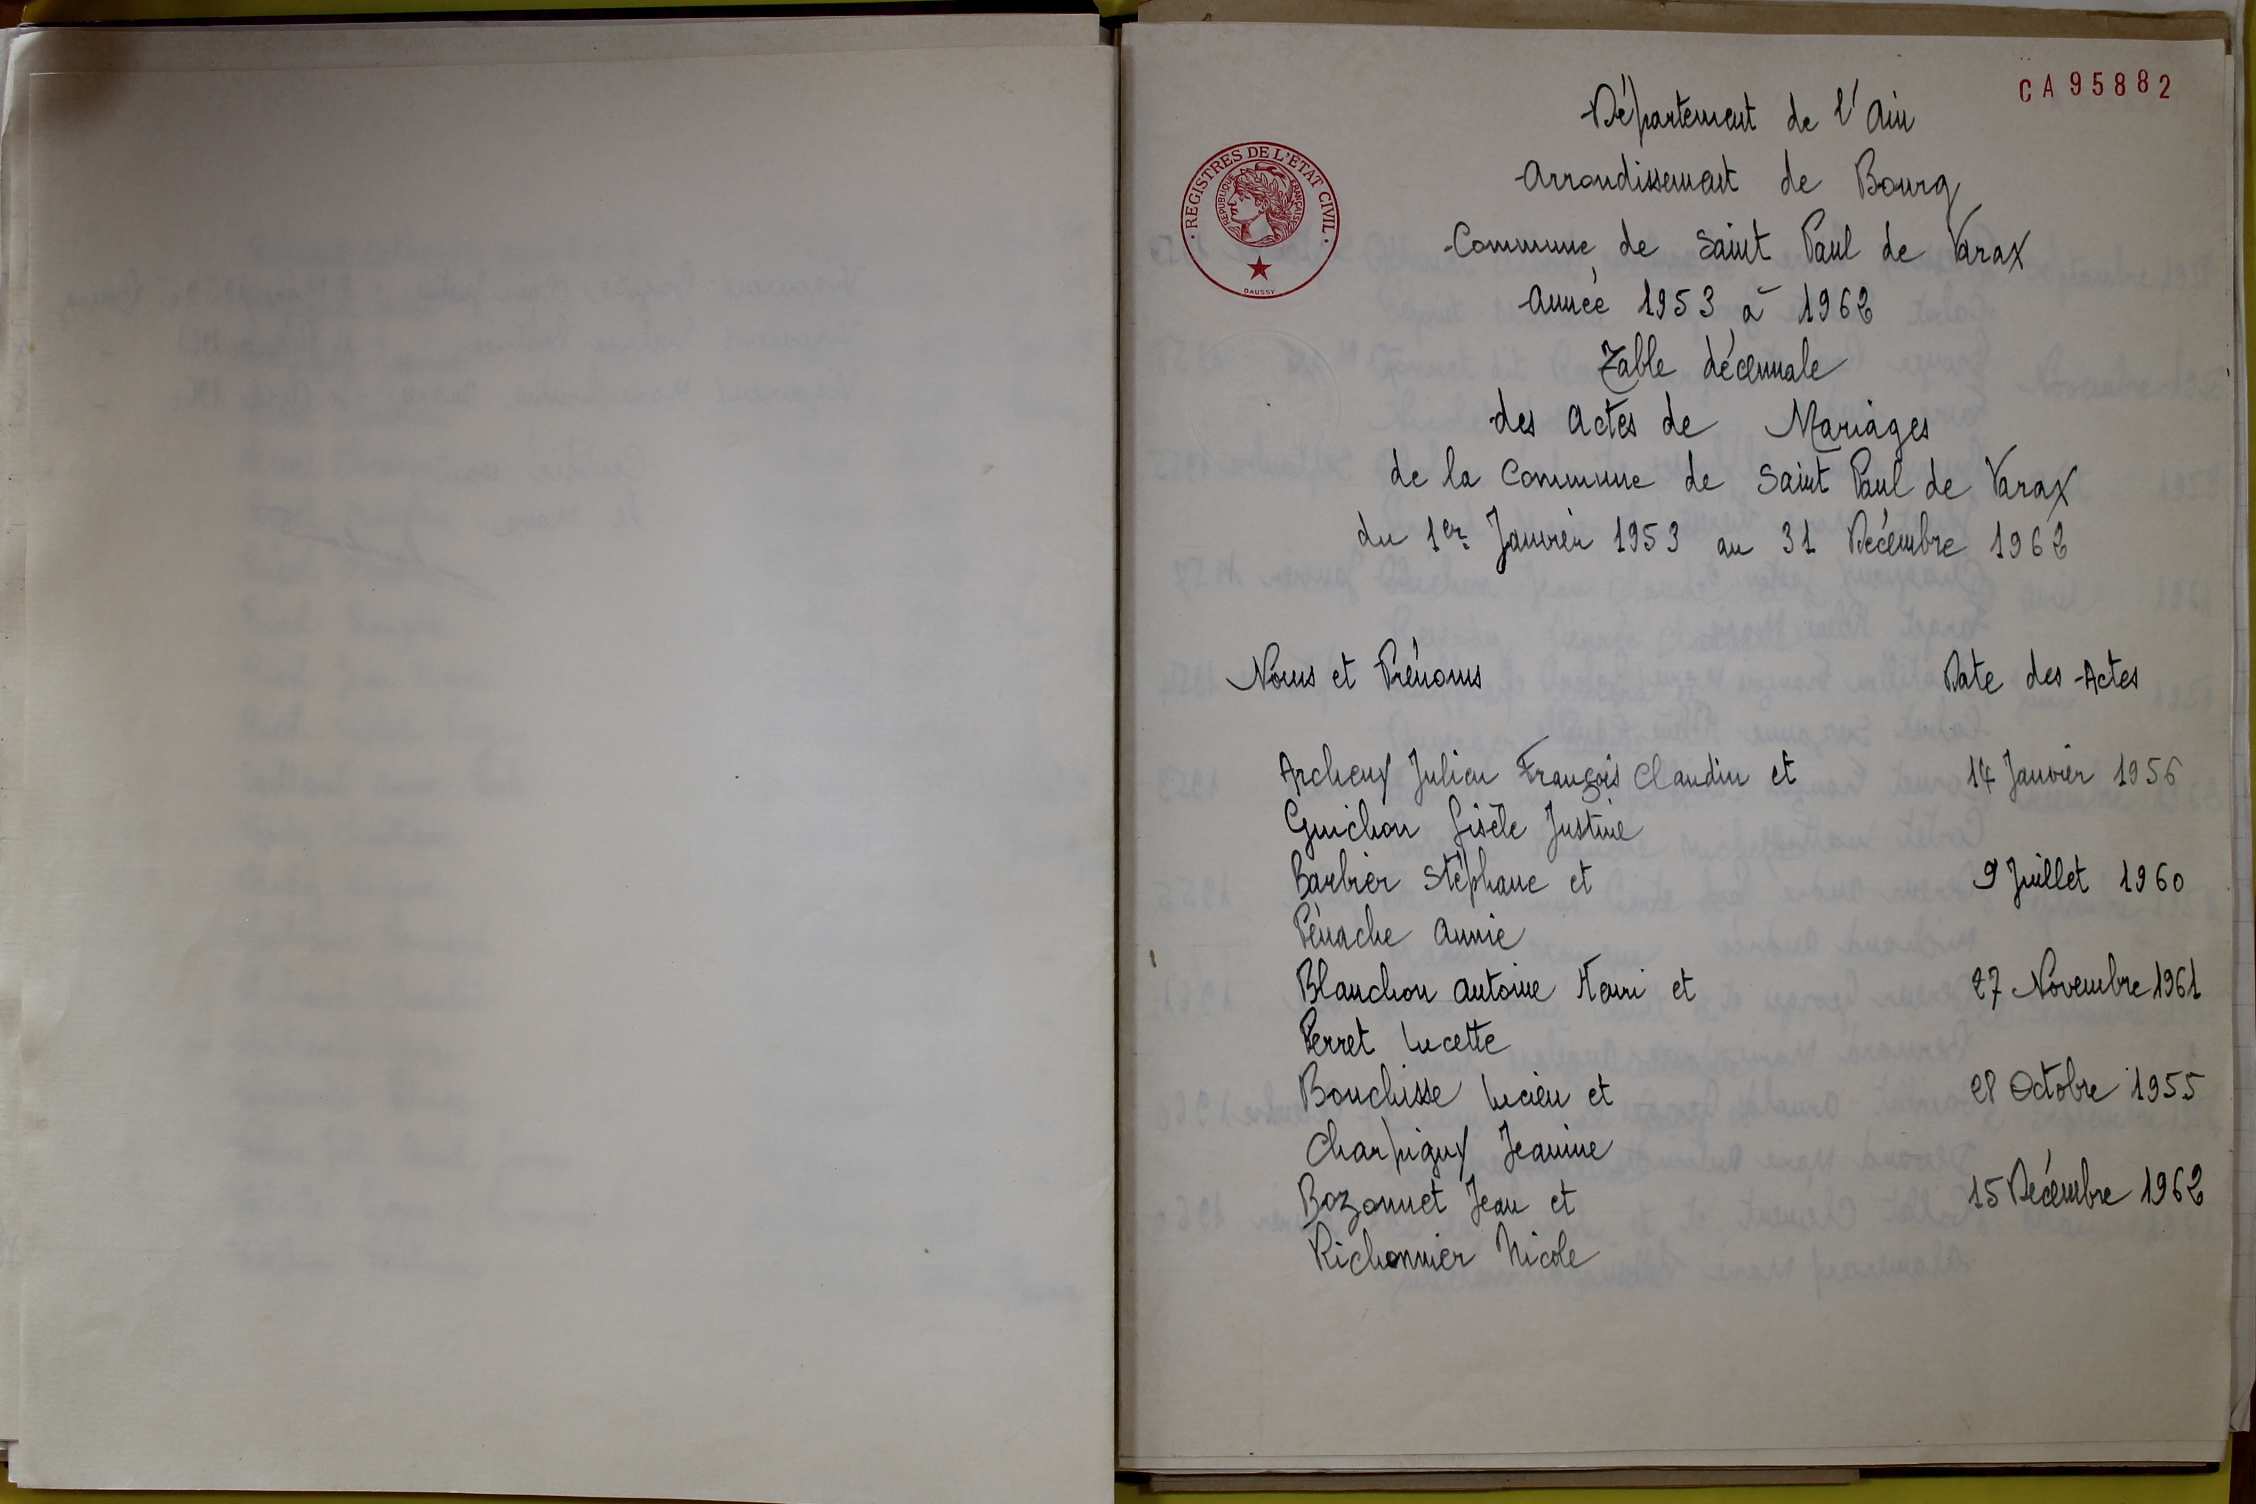 CA95882
REGISTRES DE L'ETAT CIVIL
REPUBLIQUE FRANÇAISE
DAUSSY
Département de l'Ain
Arrondissement de Bourg
Commune de Saint Paul de Varax
Année 1953 à 1962
Table décennale
des Actes de Mariages
de la Commune de Saint Paul de Varax
du 1er Janvier 1953 au 31 Décembre 1962
Noms et Prénoms Date des Actes
Archeny Julien François Claudin et 14 Janvier 1956
Guichon Gisèle Justine
Barbier Stéphane et 9 Juillet 1960
Pénache Annie
Blanchon Antoine Henri et 27 Novembre 1961
Perret Lucette
Bouchisse Lucien et 28 Octobre 1955
Charpigny Jeanine
Bozonnet Jean et 15 Décembre 1962
Richonnier Nicole